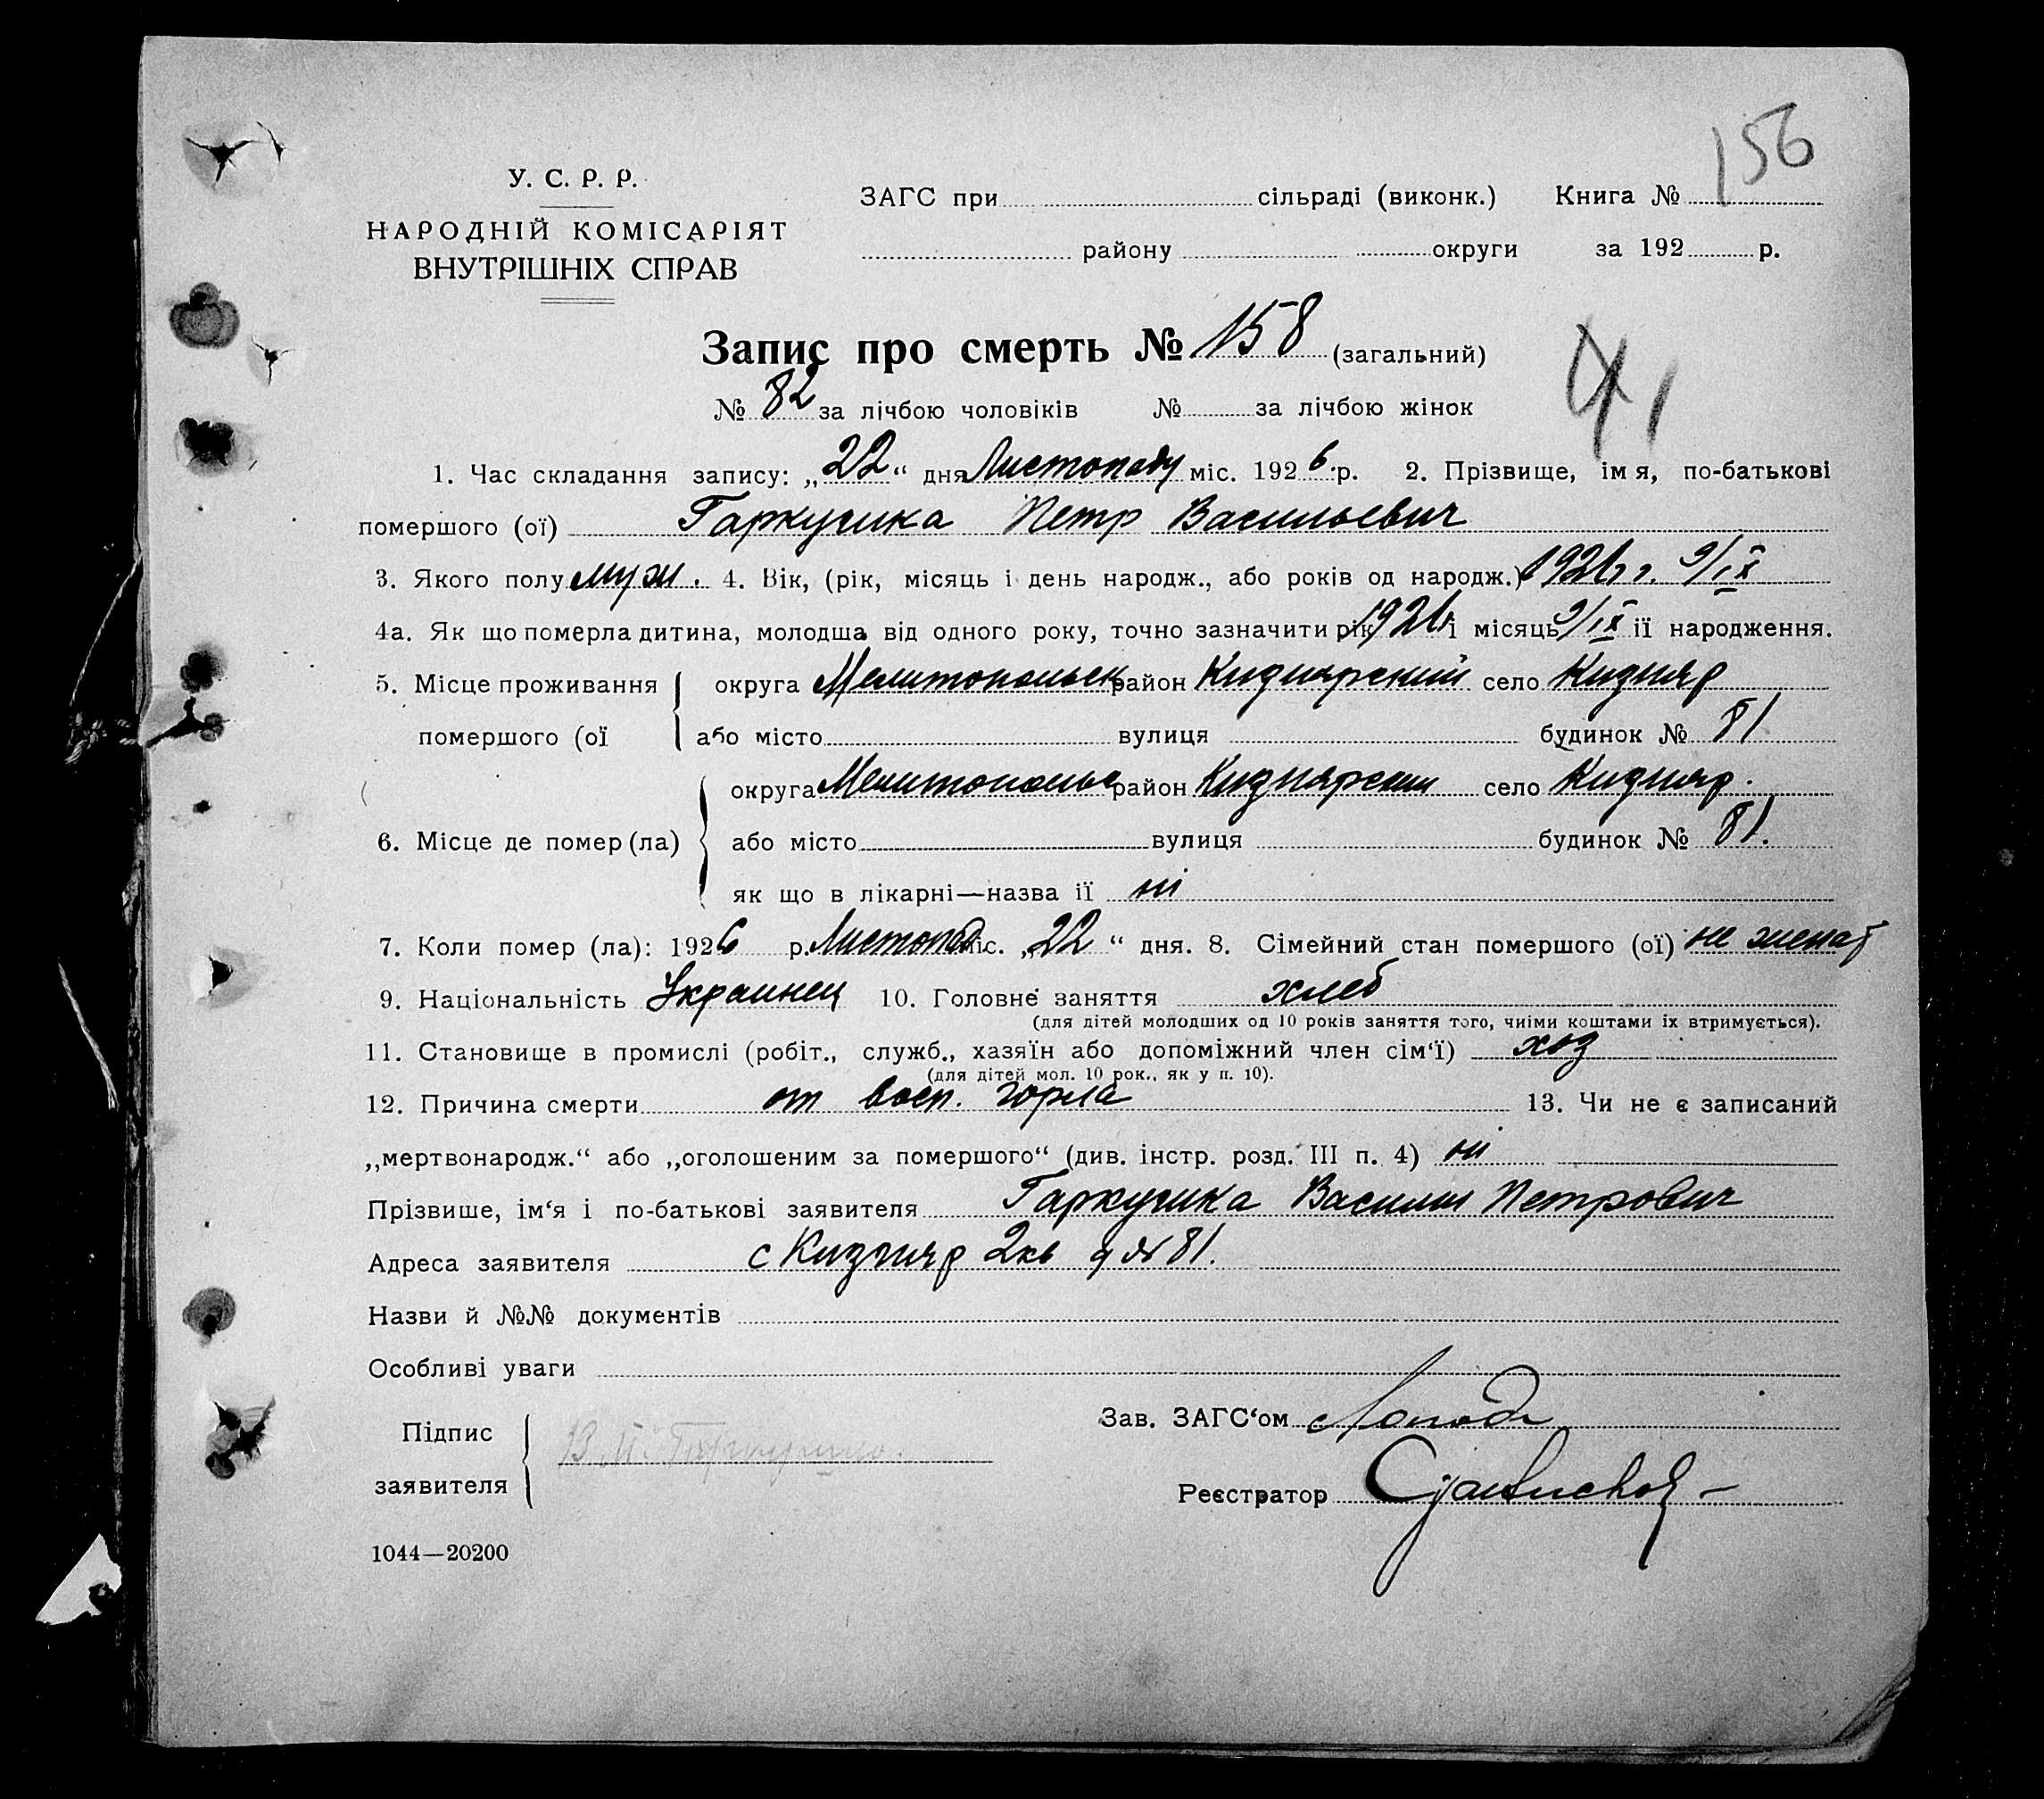 156
У. С. Р. Р.
НАРОДНІЙ КОМІСАРІЯТ
ВНУТРІШНІХ СПРАВ
ЗАГС при сільраді (виконк.) Книга №
району округи за 192 р.
Запис про смерть № 158 (загальний)
41
№ 82 за лічбою чоловіків № за лічбою жінок
1. Час складання запису: „22“ дня Листопаду міс. 1926 р. 2. Прізвище, імя, по-батькові
помершого (ої) Гаркушка Петр Васильевич
3. Якого полу муж. 4. Вік, (рік, місяць і день народж., або років од народж.) 1926 г. 9/IX
4а. Як що померла дитина, молодша від одного року, точно зазначити рік 1926 і місяць 9/IX її народження.
5. Місце проживання округа Мелитопольск район Кизиярский село Кизияр
помершого (ої або місто вулиця будинок № 81
округа Мелитопольс район Кизиярский село Кизияр.
6. Місце де помер (ла) або місто вулиця будинок № 81.
як що в лікарні—назва її ні
7. Коли помер (ла): 1926 р. Листопад міс. „22“ дня. 8. Сімейний стан помершого (ої) не женат
9. Національність Украинец 10. Головне заняття хлеб
(для дітей молодших од 10 років заняття того, чиїми коштами їх втримується).
11. Становище в промислі (робіт., служб., хазяїн або допоміжний член сім‘ї) хоз
(для дітей мол. 10 рок., як у п. 10).
12. Причина смерти от восп. горла 13. Чи не є записаний
„мертвонародж.“ або „оголошеним за помершого“ (див. інстр. розд. III п. 4) ні
Прізвише, ім‘я і по-батькові заявителя Гаркушка Василий Петрович
Адреса заявителя с Кизияр 2кв д № 81.
Назви й №№ документів
Особливі уваги
Підпис
заявителя
Зав. ЗАГС‘ом
Реєстратор
1044—20200